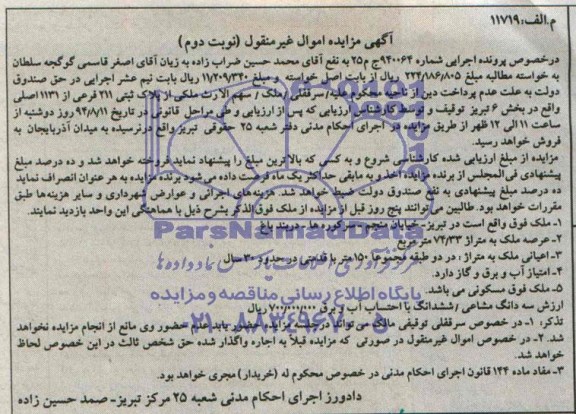 م.الف: ۱۱۷۱۹
آگهی مزایده اموال غیر منقول (نوبت دوم)
درخصوص پرونده اجرایی شماره ۹۴۰۰۶۴ج م۲۵ به نفع آقای محمد حسین ضراب زاده به زیان آقای اصغر قاسمی گوگجه سلطان
به خواسته مطالبه مبلغ ۲۲۴/۸۸۶/۸۰۵ ریال از بابت اصل خواسته و مبلغ ۱۱/۲۰۹/۳۴۰ ریال بابت نیم عشر اجرایی در حق صندوق
دولت به علت عدم پرداخت دین از ناحیه محکوم علیه/سرقفلی/ملک / سهم الارث ملکی از پلاک ثبتی ۲۱۱ فرعی از ۱۱۳۱ اصلی
واقع در بخش ۶ تبریز توقیف و توسط کارشناس ارزیابی که پس از ارزیابی و طی مراحل قانونی در تاریخ ۹۴/۸/۱۱ روز دوشنبه از
ساعت ۱۱ الی ۱۲ ظهر از طریق مزایده در اجرای احکام مدنی دفتر شعبه ۲۵ حقوقی تبریز واقع درنرسیده به میدان آذربایجان به
فروش خواهد رسید.
مزایده از مبلغ ارزیابی شده کارشناسی شروع و به کسی که بالاترین مبلغ را پیشنهاد نماید فروخته خواهد شد و ده درصد مبلغ
پیشنهادی فی المجلس از برنده مزایده اخذ و به مابقی حداکثر یک ماه فرصت داده می شود برنده مزایده به هر عنوان انصراف نماید
ده درصد مبلغ پیشنهادی به نفع صندوق دولت ضبط خواهد شد. هزینه های اجرائی و عوارض شهرداری و سایر هزینه ها طبق
مقررات خواهد بود. طالبین می توانند پنج روز قبل از مزایده از ملک فوق الذکر بشرح ذیل با هماهنگی این واحد بازدید نمایند.
۱- ملک فوق واقع است در تبریز- خیابان منجم - سرکوره ها- دربند باغ
۲- عرصه ملک به متراژ ۷۴/۳۳ متر مربع
۳- اعیانی ملک به متراژ : در دو طبقه مجموعا ۱۵۰ متر با قدمتی در حدود ۳۰ سال
۴- امتیاز آب و برق و گاز دارد.
۵- ملک فوق مسکونی می باشد.
ارزش سه دانگ مشاعی / ششدانگ با احتساب آب و برق ۷۰۰/۰۰۰/۰۰۰ ریال
تذکر: ۱- در خصوص سرقفلی توقیفی مالک می تواند در جلسه مزایده حضور یابد عدم حضور وی مانع از انجام مزایده نخواهد
شد. ۲- در خصوص اموال غیر منقول در صورتی که مزایده قبلاً به اجاره واگذار شده حق شخص ثالث در این خصوص لحاظ
خواهد شد.
۳- مفاد ماده ۱۴۴ قانون اجرای احکام مدنی در خصوص محکوم له (خریدار) مجری خواهد بود.
دادورز اجرای احکام مدنی شعبه ۲۵ مرکز تبریز- صمد حسین زاده
ParsNamadData
پایگاه اطلاع رسانی مناقصه و مزایده
۰۲۱-۸۸۳۴۹۶۷۰